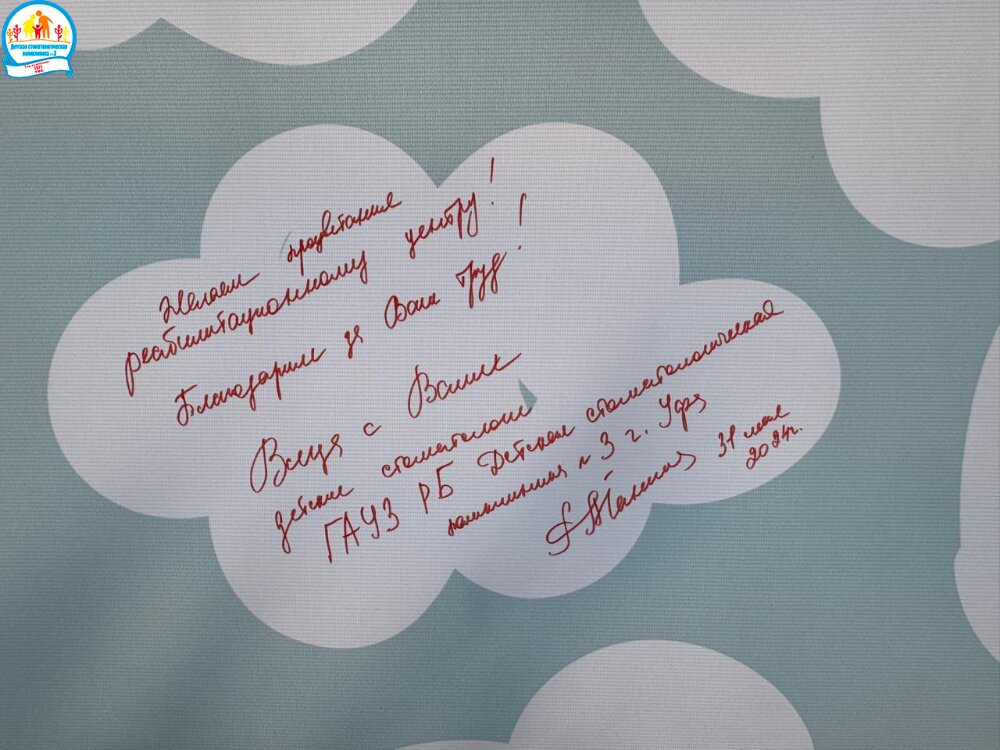 Детская стоматологическая
поликлиника №3
Желаем процветания
реабилитационному центру!
Благодарим за Ваш труд!
Всегда с Вами
детские стоматологи
ГАУЗ РБ Детская стоматологическая
поликлиника № 3 г. Уфа
31 мая
2024г.